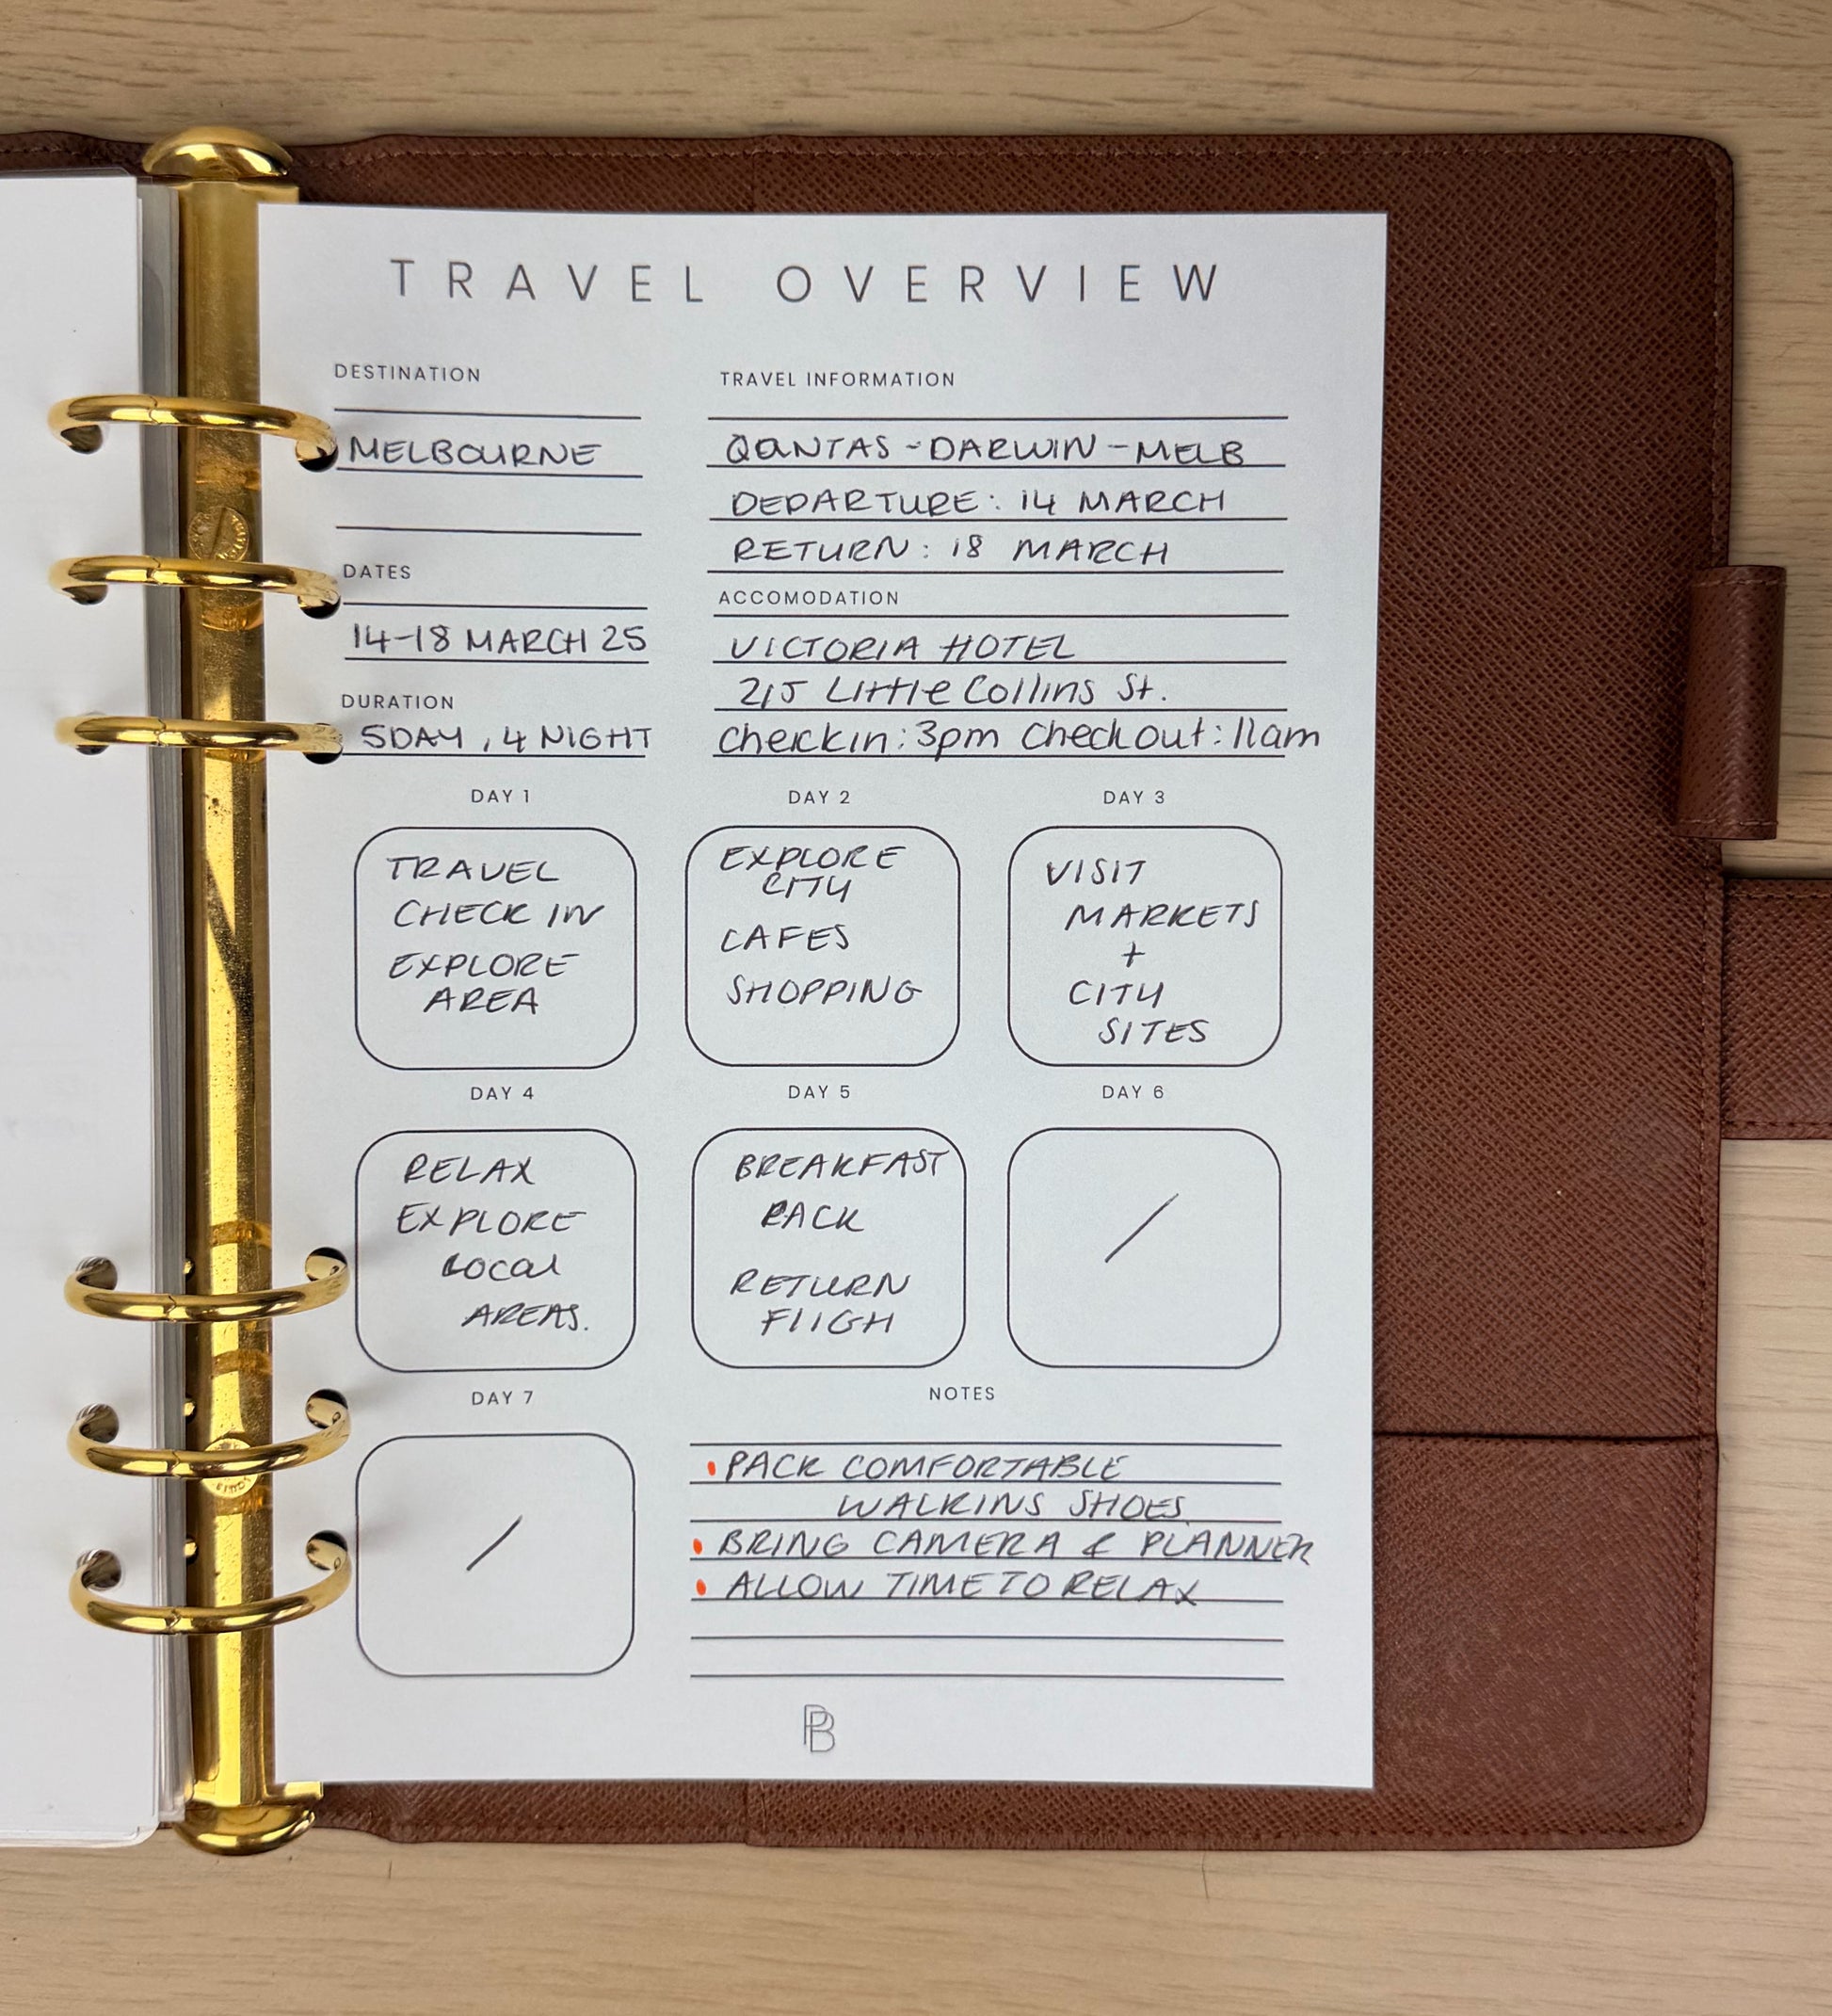 TRAVEL OVERVIEW
DESTINATION
MELBOURNE
DATES
14-18 MARCH 25
DURATION
5DAY, 4 NIGHT
TRAVEL INFORMATION
QANTAS - DARWIN - MELB
DEPARTURE: 14 MARCH
RETURN: 18 MARCH
ACCOMODATION
VICTORIA HOTEL
215 Little Collins St.
checkin: 3pm Checkout: 11am
DAY 1
TRAVEL
CHECK IN
EXPLORE
AREA
DAY 2
EXPLORE
CITY
CAFES
SHOPPING
DAY 3
VISIT
MARKETS
+
CITY
SITES
DAY 4
RELAX
EXPLORE
Local
AREAS.
DAY 5
BREAKFAST
PACK
RETURN
FlIGH
DAY 6
/
DAY 7
/
NOTES
• PACK COMFORTABLE
WALKINS SHOES
• BRING CAMERA & PLANNER
• ALLOW TIME TO RELAX
PB